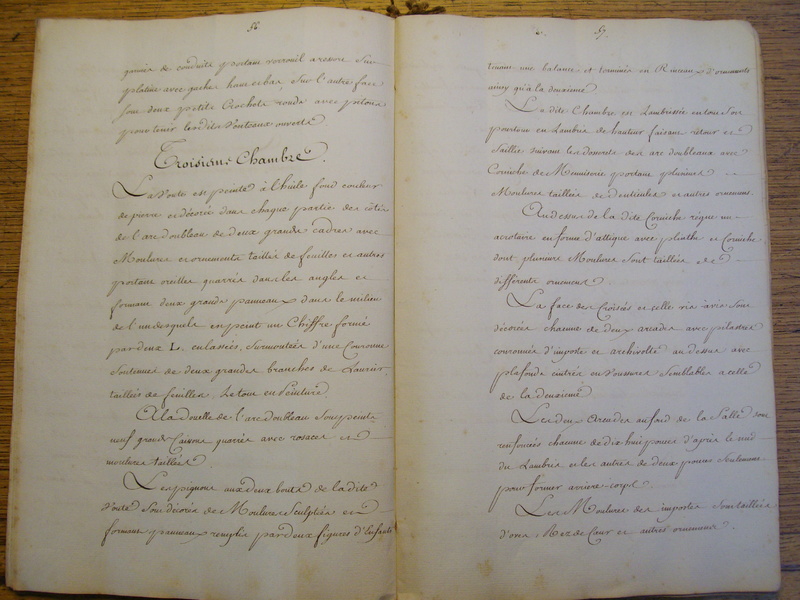 56.
garnis de conduits portant verrouil a ressort Sur
platine avec gaches haut et bas, Sur l'autre face
Sont deux petits Crochets ronds avec pitons
pour tenir lesdits Vonteaux ouverts
Troisieme Chambre.
La Voute est peinte à l'huile fond couleur
de pierre et décorée dans chaque partie des côtés
de l'arc doubleau de deux grands cadres avec
Moulures et ornements taillés de feuilles et autres
portant oreilles quarrés dans les angles et
formant deux grands panneaux dans le milieu
de l'un desquels en peint un Chiffre formé
par deux L. enlassées, Surmontées d'une Couronne
Soutenues de deux grandes branches de Laurier
taillées de feuilles, Le tout en Peinture
A la douelle de l'arc doubleau Sont peints
neuf grands Caisson quarrés avec rosaces et
moulures taillées
Les pignons aux deux bouts de la dite
Voute Sont décorés de Moulures Sculptées et
formant panneaux remplis par deux figures d'Enfants
57.
tenant une balance et terminés en Rinceau d'ornements
ainsy qu'à la deuxieme
La dite Chambre est Lambrissée en tout Son
pourtour en Lambris de hauteur faisant retour et
Saillie suivant les dosserets des arc doubleaux avec
Corniche de Menuiserie portant plusieurs
Moulures taillées de denticules et autres ornemens.
Au dessus de la dite Corniche règne un
acrotaire en forme d'attique avec plinthe et Corniche,
dont plusieurs Moulures Sont taillées de
différents ornemens.
La face des Croisées et celle vis-à-vis Sont
décorées chacune de deux arcades avec pilastres
couronnés d'imposte et archivolte au dessus avec
plafonds cintrés en Voussures Semblables a celle
de la deuxieme
Les deux Arcades au fond de la Salle sont
renfoncées chacune de dix huit pouces d'après le nud
du Lambris et les autres de deux pouces Seulement
pour former arriere-corps
Les Moulures des impostes Sont taillées
d'oves, Rez de Cœur et autres ornemens.